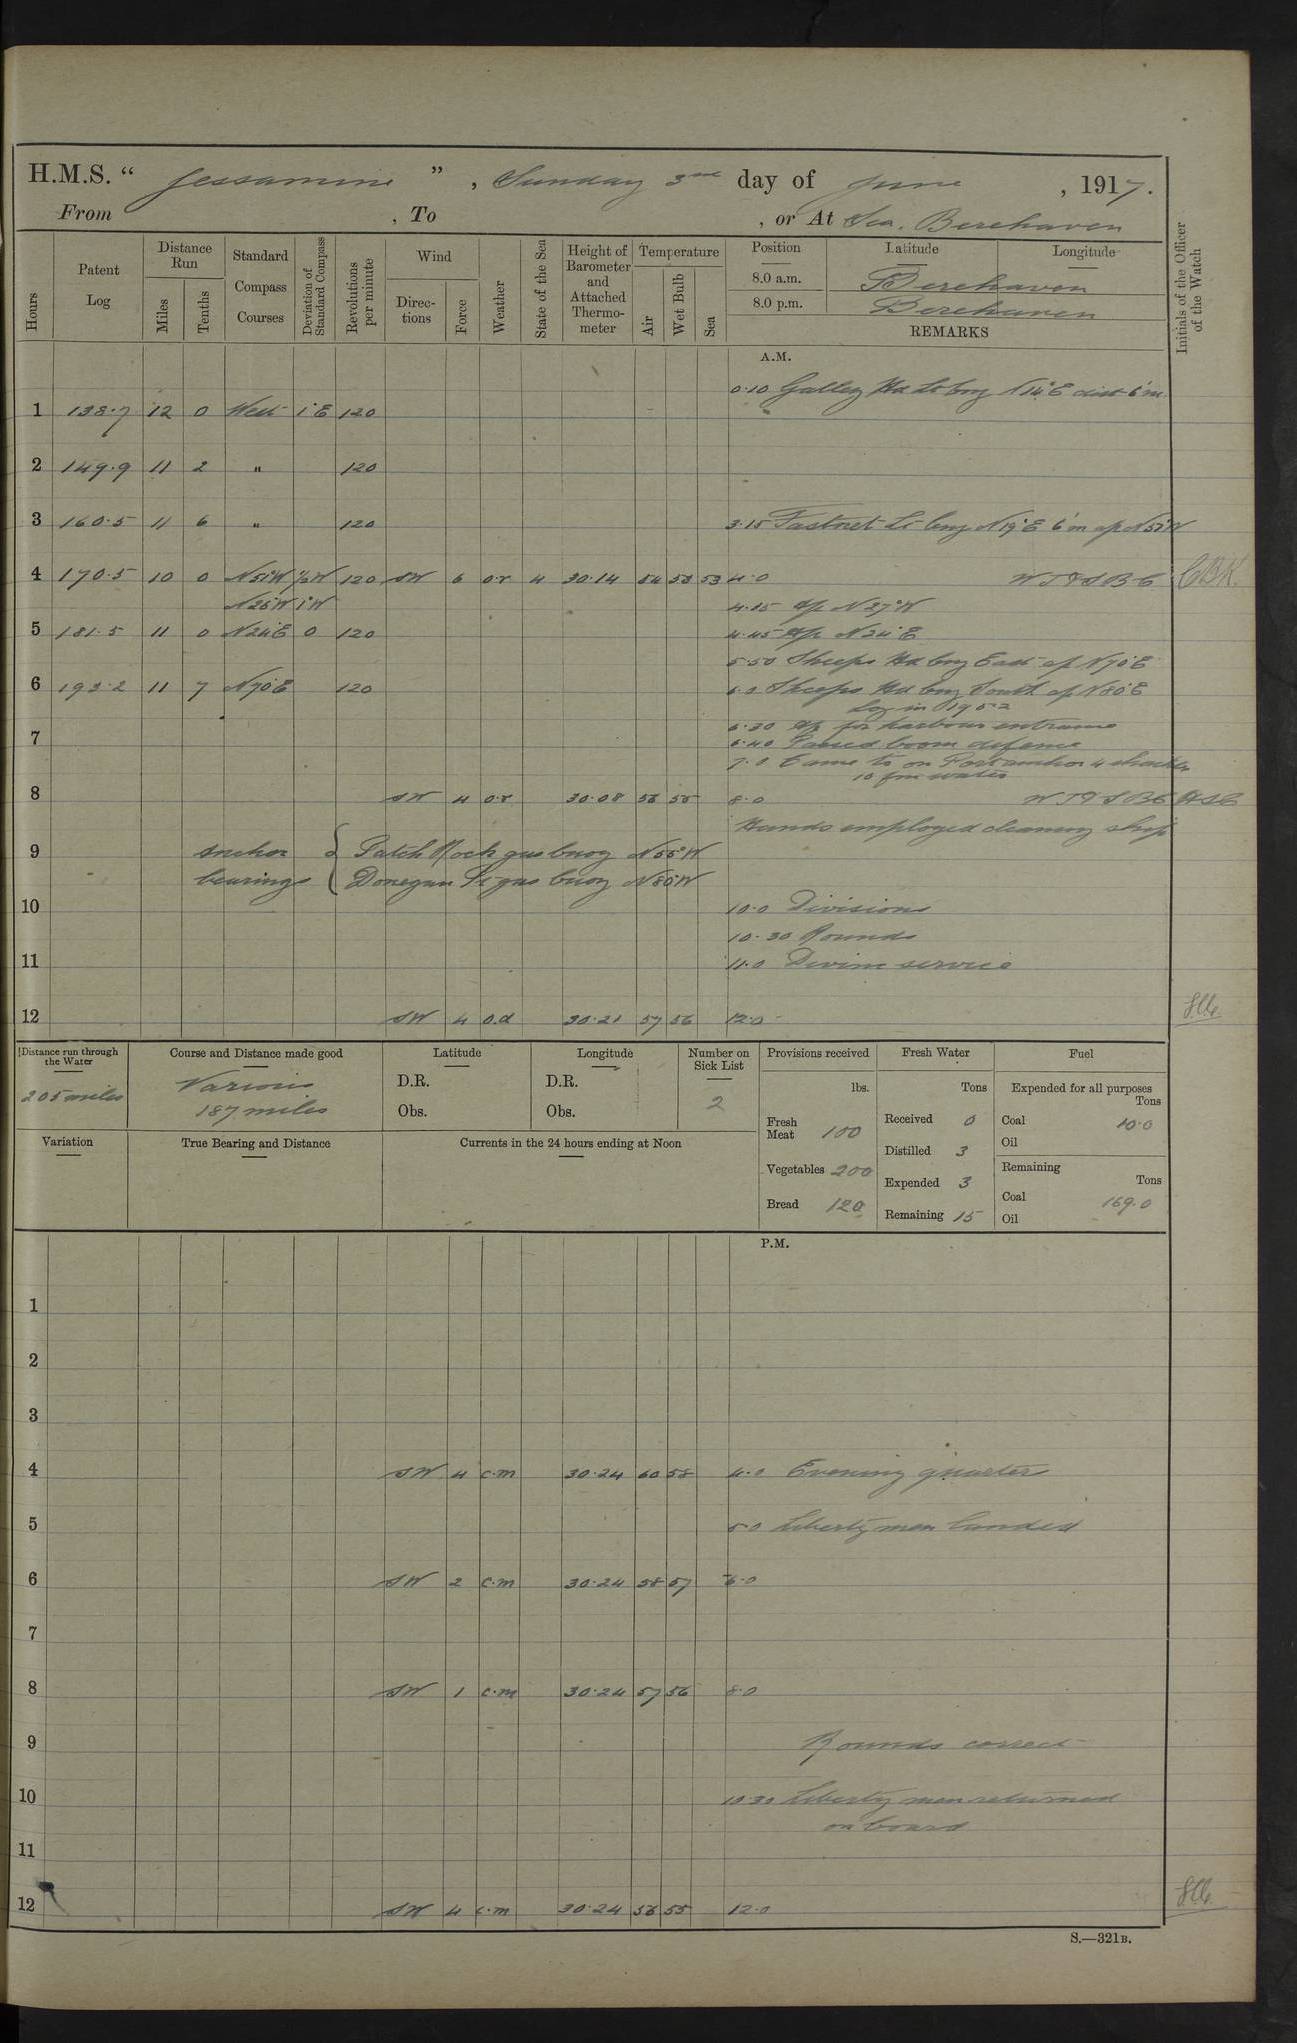 H.M.S. “ Jessamine ” , Sunday 3rd day of June , 1917.
From , To , or At Sea. Berehaven
Hours
Patent Log
Distance Run
Miles
Tenths
Standard Compass Courses
Deviation of Standard Compass
Revolutions per minute
Wind
Directions
Force
Weather
State of the Sea
Height of Barometer and Attached Thermometer
Temperature
Air
Wet Bulb
Sea
Position
Latitude
Longitude
8.0 a.m. Berehaven
8.0 p.m. Berehaven
REMARKS
Initials of the Officer of the Watch
A.M.
0.10 Galley Hd Lt brg N14°E dist 6'm
1 138.7 12 0 West 1°E 120
2 149.9 11 2 " 120
3 160.5 11 6 " 120 3.15 Fastnet Lt brg N19°E 6'm a/c N52°W
4 170.5 10 0 N51°W ½W 120 SW 6 o.r 4 30.14 54 53 53 4.0 W T & S B C CBK.
N26°W 1°W 4.15 a/c N27°W
5 181.5 11 0 N24°E 0 120 4.45 a/c N24°E
5.50 Sheeps Hd brg East a/c N70°E
6 193.2 11 7 N70°E 120 6.0 Sheeps Hd brg South a/c N80°E
Log in 195.2
6.30 a/c for harbour entrance
7 6.40 Passed boom defence
7.0 Came to on Port anchor 4 shackles
10 fm water
8 SW 4 o.r 30.08 56 55 8.0 W T & S B C
Hands employed cleaning ship
9 Anchor bearings { Patch Rock gas buoy N55°W
Donegan Pt gas buoy N85°W
10 10.0 Divisions
10.30 Rounds
11 11.0 Divine service
12 SW 4 o.d 30.21 57 56 12.0
Distance run through the Water
205 miles
Course and Distance made good
Various
187 miles
Latitude
D.R.
Obs.
Longitude
D.R.
Obs.
Number on Sick List
2
Provisions received
lbs.
Fresh Meat 100
Vegetables 200
Bread 120
Fresh Water
Tons
Received 0
Distilled 3
Expended 3
Remaining 15
Fuel
Expended for all purposes
Tons
Coal 10.0
Oil
Remaining
Tons
Coal 169.0
Oil
Variation
True Bearing and Distance
Currents in the 24 hours ending at Noon
P.M.
1
2
3
4 SW 4 c.m 30.24 60 58 4.0 Evening quarters
5 5.0 Liberty men landed
6 SW 2 c.m 30.24 58 57 6.0
7
8 SW 1 c.m 30.24 57 56 8.0
9 Rounds correct
10 10.30 Liberty men returned
on board
11
12 SW 4 c.m 30.24 56 55 12.0
S.—321B.